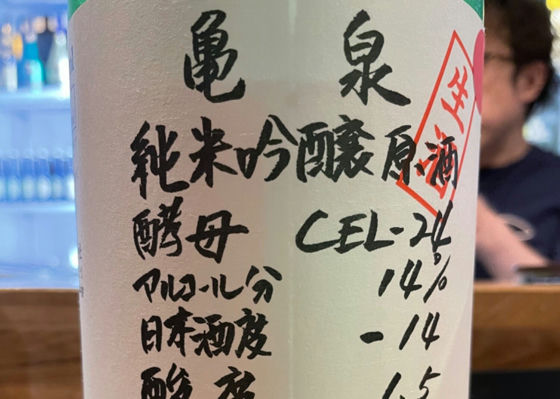 亀泉
純米吟醸原酒
生酒
酵母 CEL-24
アルコール分 14%
日本酒度 -14
酸度 1.5